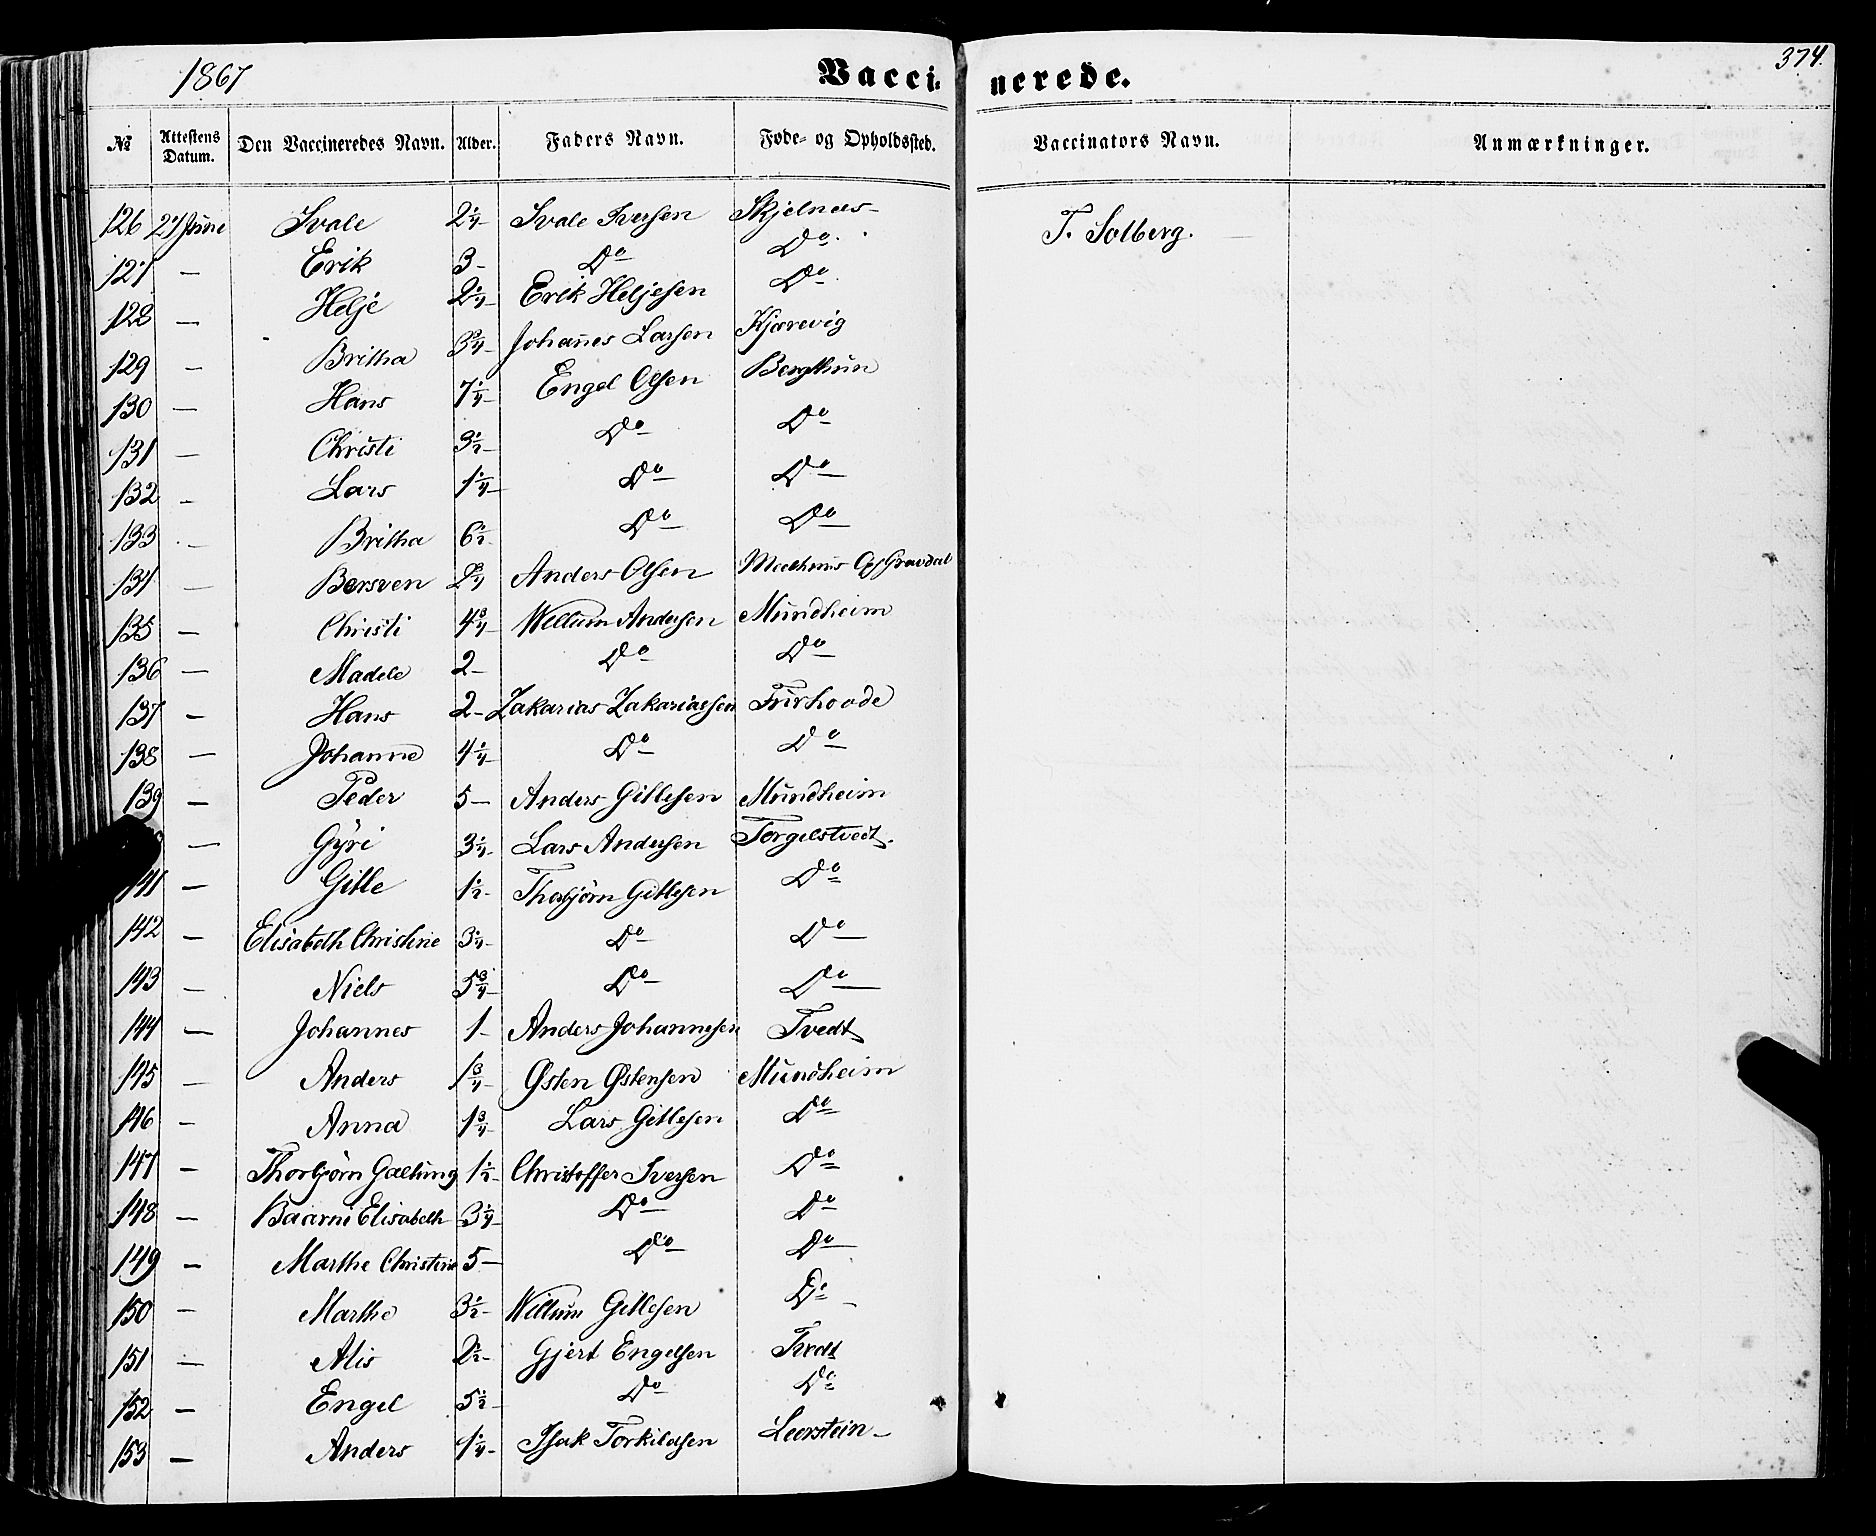 1867 Vacci- nerede. 374.
№ Attestens Datum. Den Vaccineredes Navn. Alder. Faders Navn. Føde- og Opholdssted. Vaccinators Navn. Anmærkninger.
126 27 June Ivale 2 1/4 Ivale Iversen Skjelnæs T. Solberg.
127 — Erik 3 - Do Do
128 — Helje 2 1/4 Erik Heljesen Do
129 — Britha 3 3/4 Johannes Larsen Kjærevig
130 — Hans 7 1/4 Engel Olsen Bergthun
131 — Christi 3 1/2 Do Do
132 — Lars 1 1/4 Do Do
133 — Britha 6 1/2 Do Do
134 — Bersven Anders Olsen
135 — Christi 4 3/4 Willum Andersen Mundheim
136 — Madele 2 - Do Do
137 — Hans 2 - Zakarias Zakariassen Furhovde
138 — Johanne 4 1/4 Do Do
139 — Peder 5 — Anders Gitlesen Mundheim
— Gÿri 3 1/4 Lars Andersen Torgilstvedt.
141 — Gitle 1 1/2 Thorbjörn Gitlesen Do
142 — Elisabeth Christine 3 1/4 Do Do
143 — Niels 5 3/4 Do Do
144 — Johannes 1 - Anders Johannesen Tvedt
145 — Anders 1 3/4 Østen Østensen Mundheim
146 — Anna 1 3/4 Lars Gitlesen Do
147 — Thorbjörn Gaelung 1 1/2 Christoffer Iversen Do
148 — Baarni Elisabeth 3 1/4 Do Do
149 — Marthe Christine 5 — Do Do
150 — Marthe 3 1/2 Willum Gitlesen Do
151 — Alis 2 1/2 Gjert Engelsen Tvedt
152 — Engel 5 1/2 Do Do
153 — Anders 1 1/4 Isak Torkildsen Leerstein